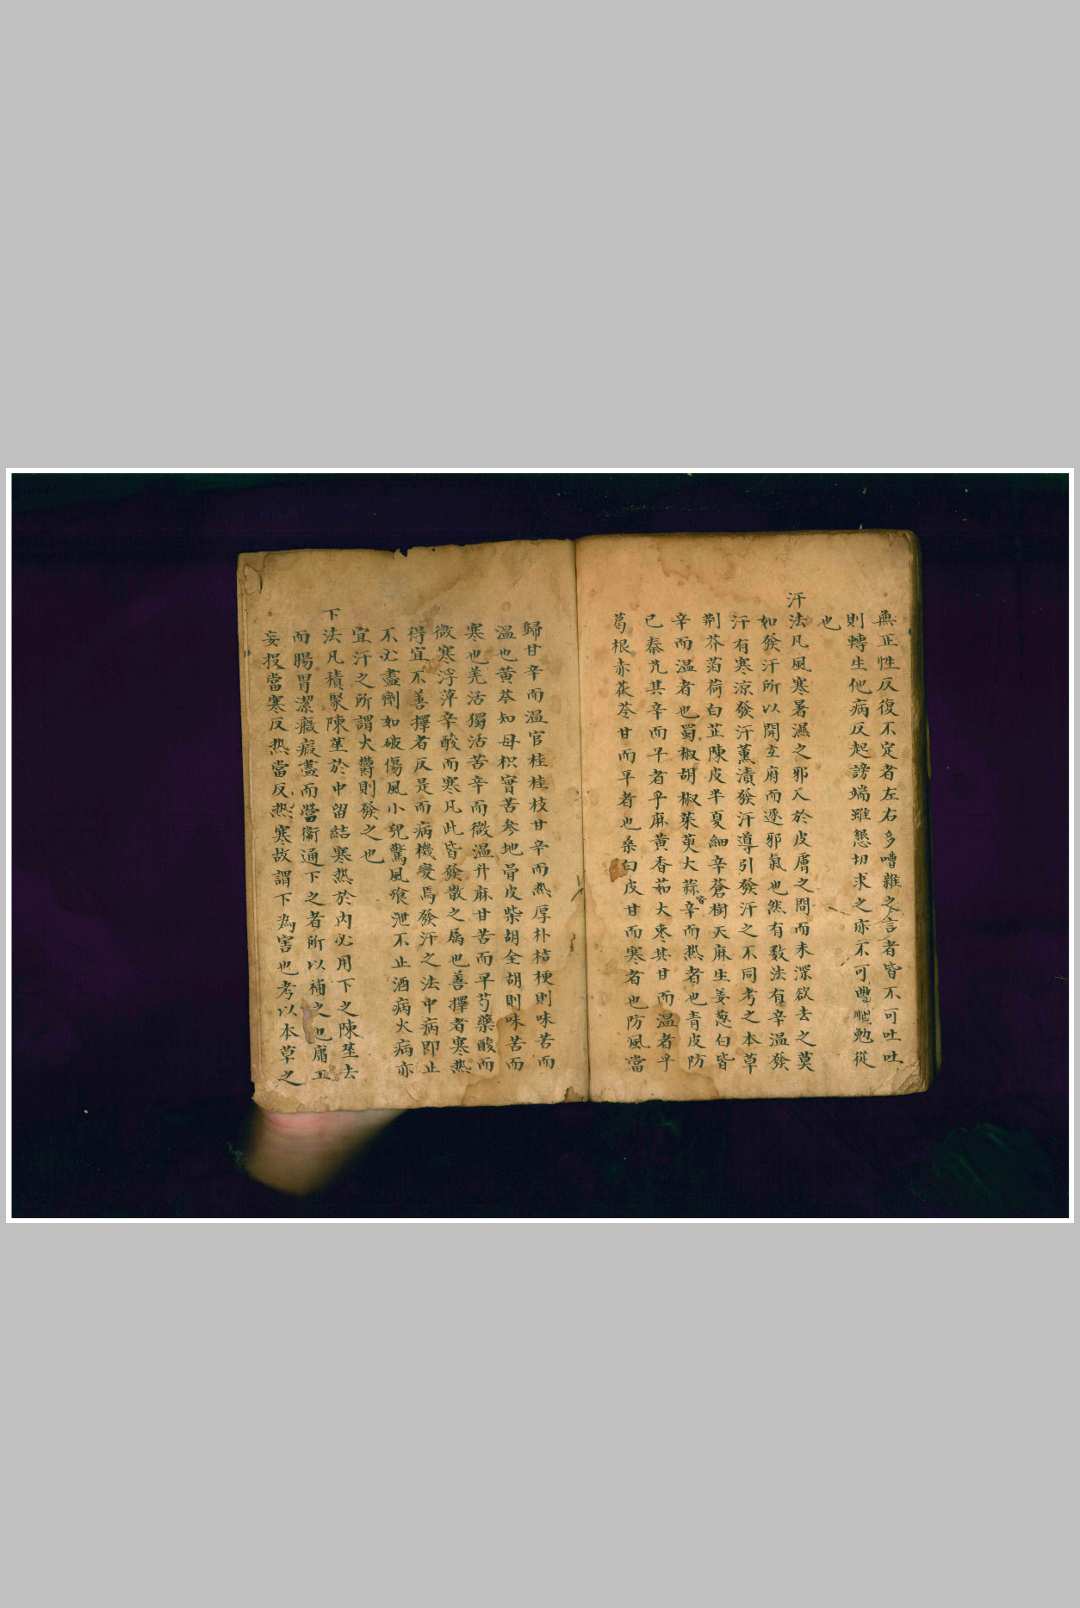 無正性反復不定者左右多嘈雜之言者皆不可吐吐
則轉生他病反起謗端雖懇切求之亦不可勉從
也
汗法凡風寒暑濕之邪入於皮膚之間而未深欲去之莫
如發汗所以開玄府而逐邪氣也然有数法有辛温發
汗有寒凉發汗薰漬發汗導引發汗之不同考之本草
荆芥荷白芷陳皮半夏細辛蒼樹天麻生姜葱白皆
辛而温者也蜀椒胡椒茱萸大蒜辛而热者也青皮防
已秦艽其辛而平者乎麻黄香茹大枣其甘而温者乎
葛根赤茯苓甘而平者也桑白皮甘而寒者也防風當
歸甘辛而温官桂桂枝甘辛而热厚朴桔梗則味苦而
温也黄芩知母枳實苦参地骨皮柴胡全胡則味苦而
寒也羌活獨活苦辛而微温升麻甘苦而平芍藥酸而
微寒浮萍辛酸而寒凡此皆發散之屬也善擇者寒热
得宜不善擇者反是而病機變焉發汗之法中病即止
不必盡劑如破傷風小兒驚風飧泄不止酒病火病亦
宜汗之所謂火欝則發之也
下法凡積聚陳莝於中留結寒热於内必用下之陳莝去
而腸胃潔癥瘕盡而營衛通下之者所以補之也庸工
妄投當寒反热當反热寒故謂下為害也考以本草之